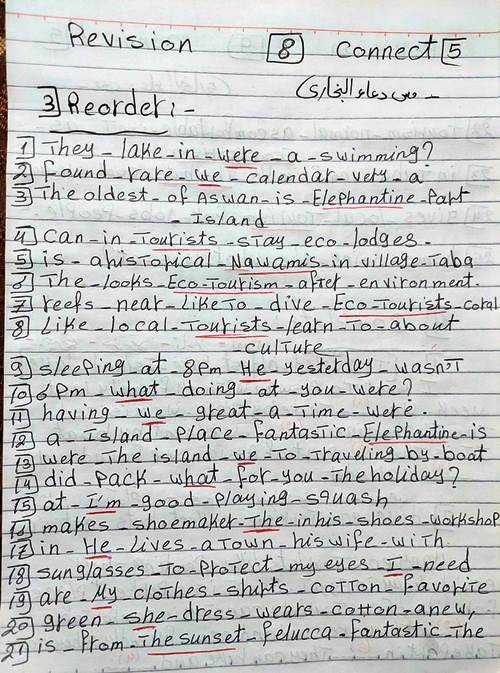 Revision 8 Connect 5
مس دعاء البخاري
3 Reorder:-
1 They - lake - in - were - a - swimming?
2 found - rare - we - calendar - very - a
3 The oldest - of Aswan - is - Elephantine - Part
- Island
4 can - in - Tourists - stay - eco - lodges.
5 is - a historical - Nawamis - in village - Taba
6 The - looks - Eco-Tourism - after - environment.
7 reefs - near - Like To - dive - Eco-Tourists - coral
8 Like - local - Tourists - learn - To - about
- culture
9 sleeping - at - 8pm - He - yesterday - wasn't
10 6pm - what - doing - at - you - were?
11 having - we - great - a - Time - were.
12 a - Island - Place - fantastic - Elephantine - is
13 were - The island - we - To - Traveling - by - boat
14 did - Pack - what - for - you - The holiday?
15 at - I'm - good - playing - squash
16 makes - shoemaker - The - in his - shoes - workshop
17 in - He - Lives - a Town - his wife - with.
18 sunglasses - To - Protect - my eyes - I - need
19 are - My - clothes - shirts - cotton - favorite
20 green - she - dress - wears - cotton - a new,
21 is - from - The sunset - felucca - fantastic - The